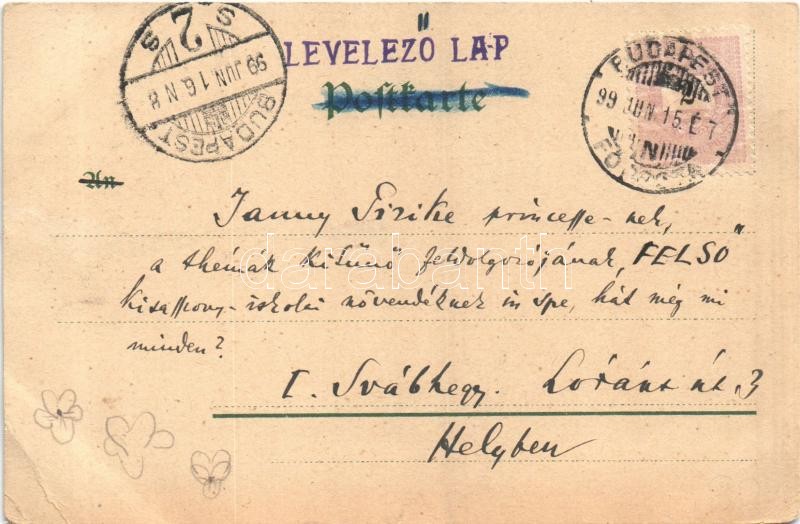 LEVELEZŐ LAP
Postkarte
BUDAPEST
99 JUN 16 N 8
BUDAPEST
99 JUN 15 E 7
An
Janny Sirike princesse-nek,
a thémák kitünő feldolgozójának, FELSŐ
kisasszony-iskolai növendéknek in spe, hát még mi
minden?
I. Svábhegy. Loránt út 3
Helyben
darabanth